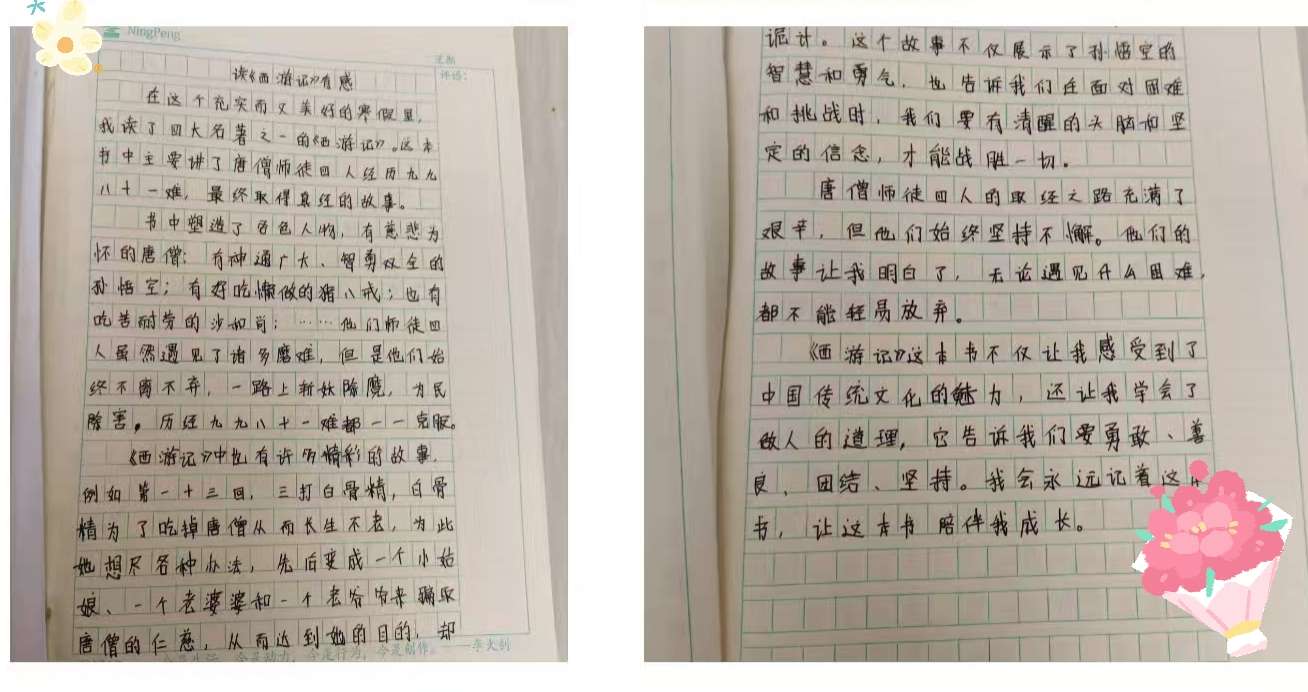 NingPeng
评语:
读《西游记》有感
在这个充实而又美好的寒假里,
我读了四大名著之一的《西游记》。这本
书中主要讲了唐僧师徒四人经历九九
八十一难,最终取得真经的故事。
书中塑造了各色人物,有慈悲为
怀的唐僧;有神通广大、智勇双全的
孙悟空;有好吃懒做的猪八戒;也有
吃苦耐劳的沙和尚;……他们师徒四
人虽然遇见了诸多磨难,但是他们始
终不离不弃,一路上斩妖除魔,为民
除害。历经九九八十一难都一一克服。
《西游记》中也有许多精彩的故事.
例如第一十三回,三打白骨精,白骨
精为了吃掉唐僧从而长生不老,为此
她想尽各种办法,先后变成一个小姑
娘、一个老婆婆和一个老爷爷来骗取
唐僧的仁慈,从而达到她的目的,却
诡计。这个故事不仅展示了孙悟空的
智慧和勇气,也告诉我们在面对困难
和挑战时,我们要有清醒的头脑和坚
定的信念,才能战胜一切。
唐僧师徒四人的取经之路充满了
艰辛,但他们始终坚持不懈。他们的
故事让我明白了,无论遇见什么困难,
都不能轻易放弃。
《西游记》这本书不仅让我感受到了
中国传统文化的魅力,还让我学会了
做人的道理,它告诉我们要勇敢、善
良、团结、坚持。我会永远记着这
书,让这本书陪伴我成长。